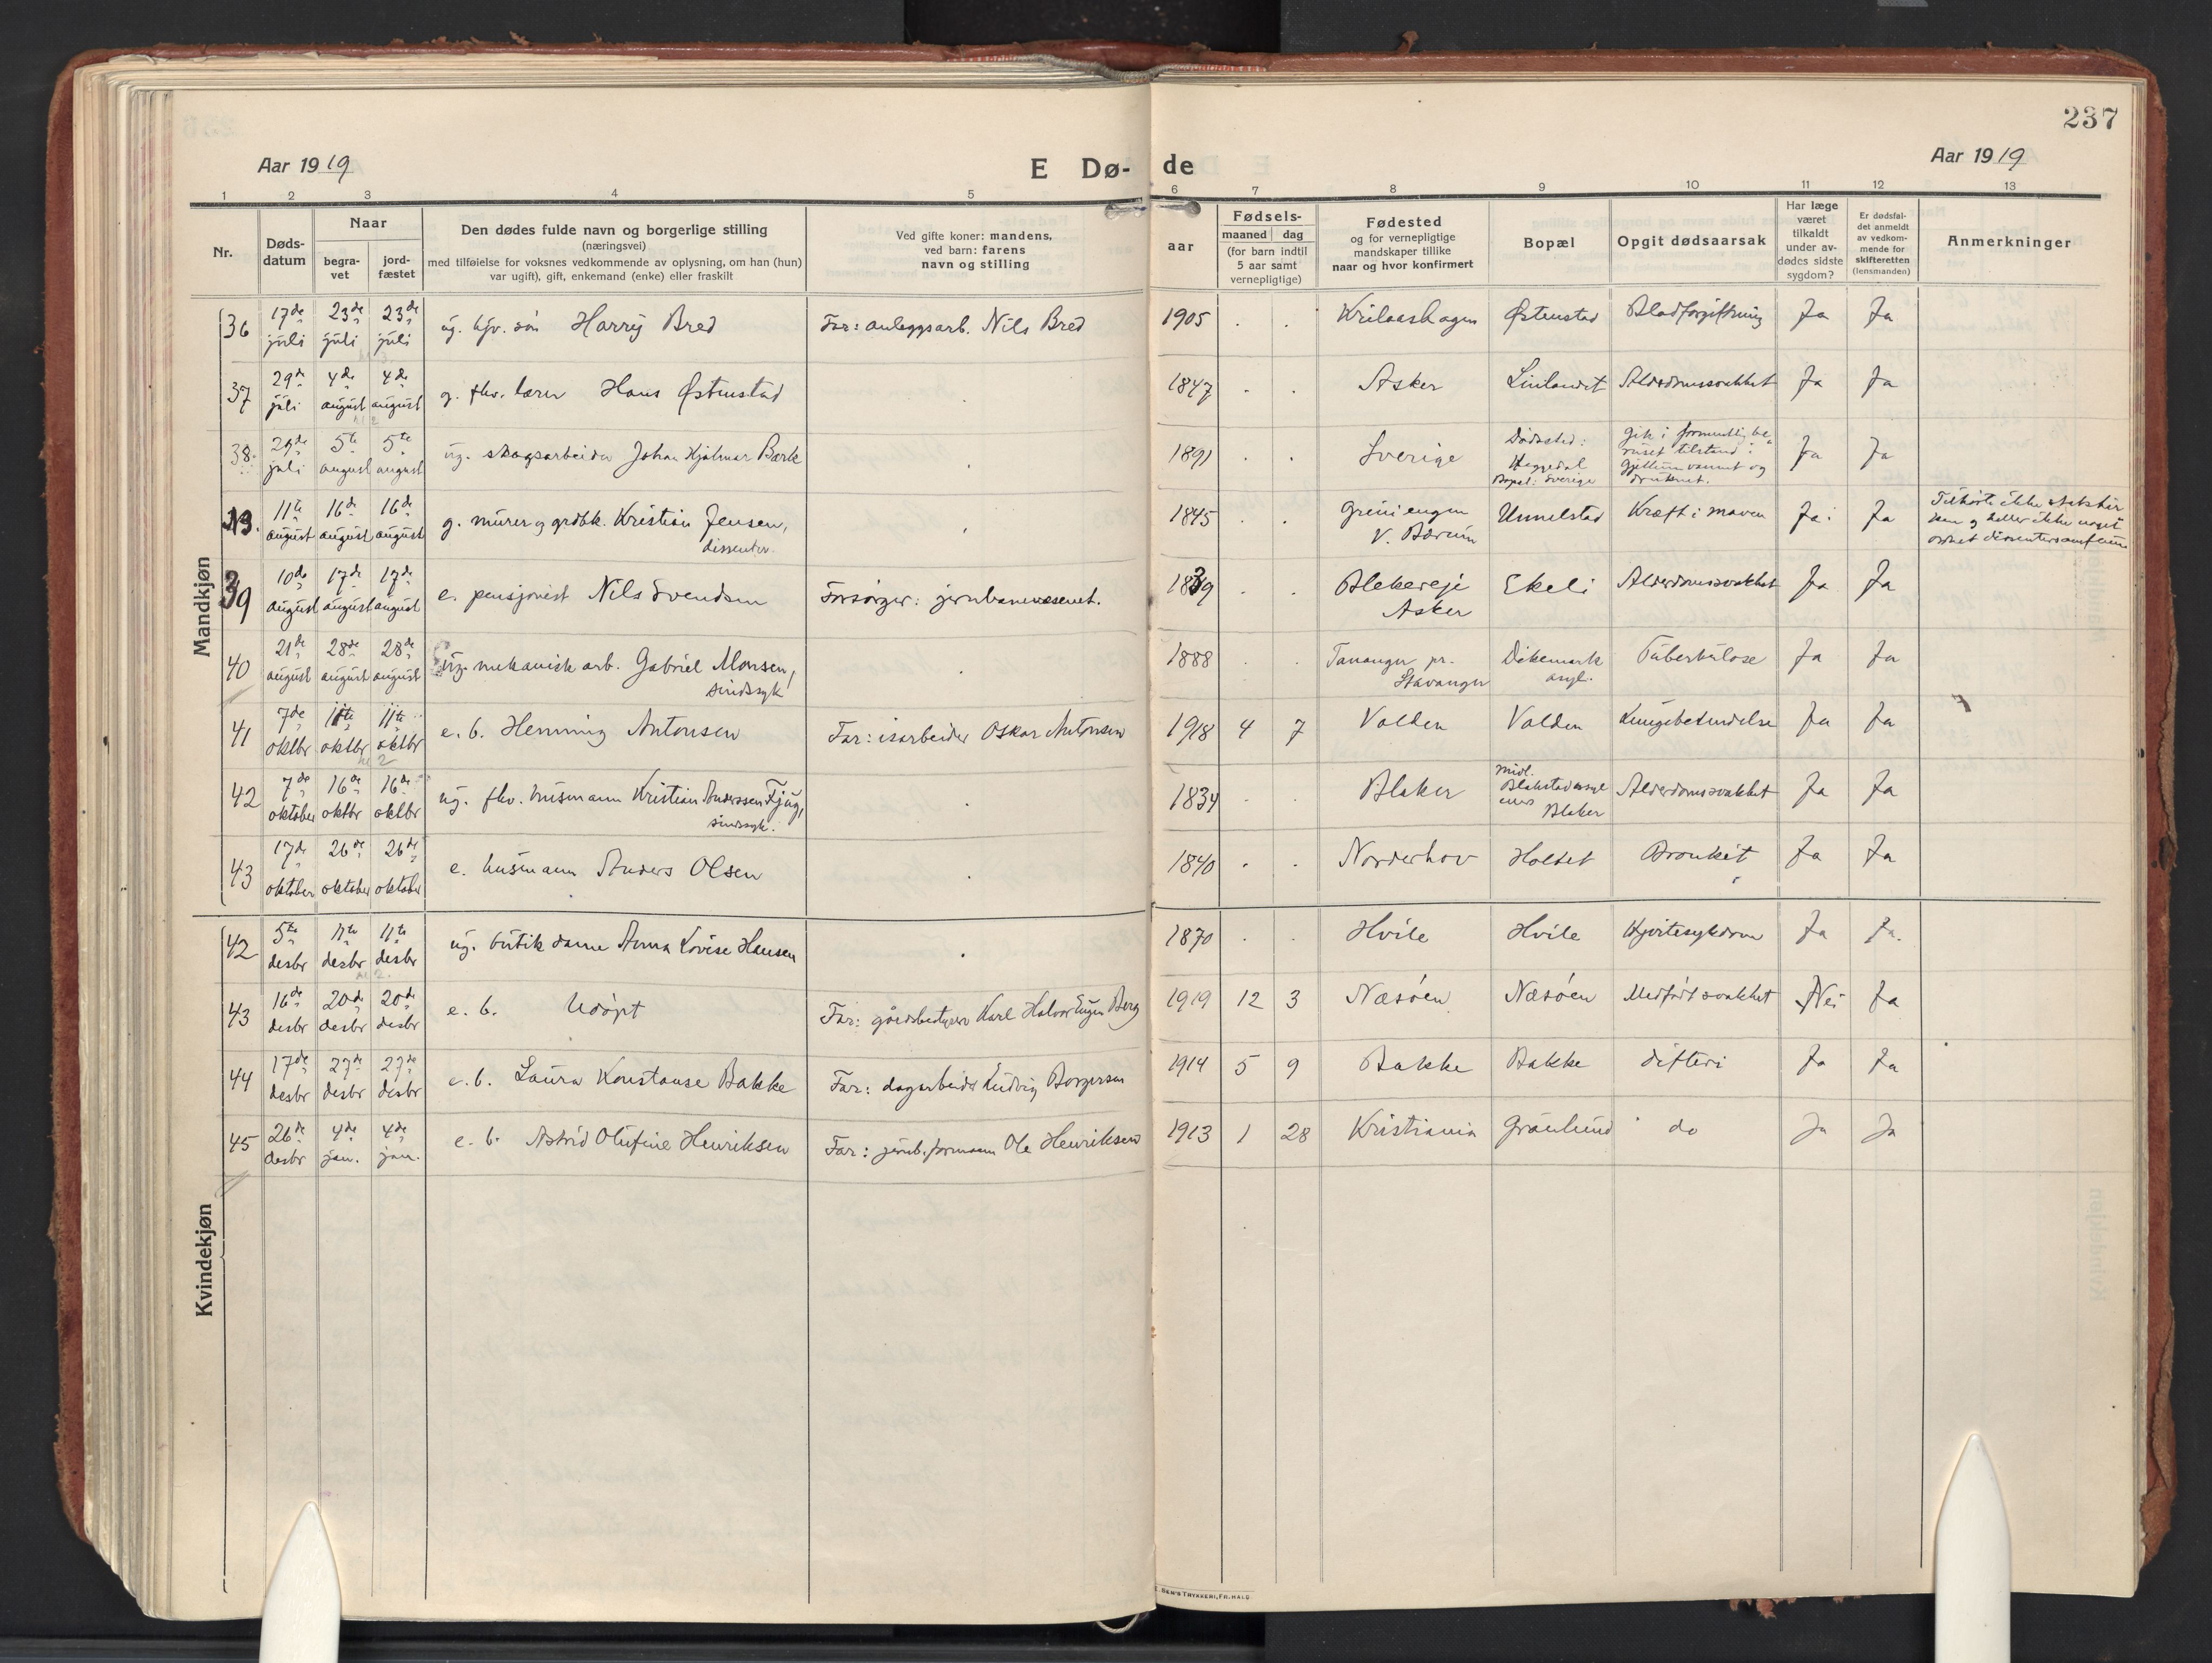 237
Aar 1919
E Dø-
de
Aar 1919
1 2 3 4 5 6 7 8 9 10 11 12 13
Nr.
Døds-
datum
Naar
begra-
vet
jord-
fæstet
Den dødes fulde navn og borgerlige stilling
(næringsvei)
med tilføielse for voksnes vedkommende av oplysning, om han (hun)
var ugift), gift, enkemand (enke) eller fraskilt
Ved gifte koner: mandens,
ved barn: farens
navn og stilling
aar
Fødsels-
maaned dag
(for barn indtil
5 aar samt
vernepligtige)
Fødested
og for vernepligtige
mandskaper tillike
naar og hvor konfirmert
Bopæl
Opgit dødsaarsak
Har læge
været
tilkaldt
under av-
dødes sidste
sygdom?
Er dødsfal-
det anmeldt
av vedkom-
mende for
skifteretten
(lensmanden)
Anmerkninger
Mandkjøn
36 17de juli 23de juli 23de juli ug. hjv. søn Harry Bred Far: anleggsarb. Nils Bred 1905 Østenstad Blodforgiftning Ja Ja
37 29de juli 4de august 4de august g. fhv. lærer Hans Østenstad 1847 Asker Alderdomssvakhet Ja Ja
38 29de juli 5te august 5te august ug. skogsarbeider Johan Hjalmar 1891 Sverige Dødssted:
Heggedal
Bopel: Sverige
Gik i formentlig be-
ruset tilstand i
Gjellumvannet og
druknet. Ja Ja
N3. 11te august 16de august 16de august g. murer og grdbk. Kristian Jensen,
dissenter. 1845 Grini engen
V. Bærum Unnelstad Kræft i maven Ja Ja Tilhørte ikke statskir-
ken og heller ikke noget
ordnet dissentersamfund
39 10de august 17de august 17de august e. pensjonist Nils Svendsen Forsørger: jernbanevæsenet. 1839 Blekereje
Asker Ekeli Alderdomssvakhet Ja Ja
40 21de august 28de august 28de august ug. mekanisk arb. Gabriel Monsen,
sindssyk 1888 Tananger pr.
Stavanger Dikemark
asyl. Tuberkulose Ja Ja
41 7de oktbr 11te oktbr 11te oktbr e. b. Henning Antonsen Far: isarbeider Oskar Antonsen 1918 4 7 Valden Valden Lungebetendelse Ja Ja
42 7de oktober 16de oktbr 16de oktbr ug. fhv. husmann Kristian Anderssen Fjug,
sindssyk. 1834 Blaker midl.
Blakstad asyl
ellers
Blaker Alderdomssvakhet Ja Ja
43 17de oktober 26de oktober 26de oktober e. husmann Anders Olsen 1840 Norderhov Holtet Bronkit Ja Ja
Kvindekjøn
42 5te desbr 11te desbr 11te desbr ug. butikdame Anna Lovise Hansen 1870 Hvile Hvile Hjertesykdom Ja Ja.
43 16de desbr 20de desbr 20de desbr e. b. Udøpt Far: gårdsbestyrer Karl Halvor Eugen Berg 1919 12 3 Næsøen Næsøen Medfødt svakhet Nei Ja
44 17de desbr 27de desbr 27de desbr e. b. Laura Konstanse Bakke Far: dagarbeider Ludvig Borgersen 1914 5 9 Bakke Bakke difteri Ja Ja
45 26de desbr 4de jan. 4de jan. e. b. Astrid Olufine Henriksen Far: jernb.formann Ole Henriksen 1913 1 28 Kristiania Grønlund do Ja Ja